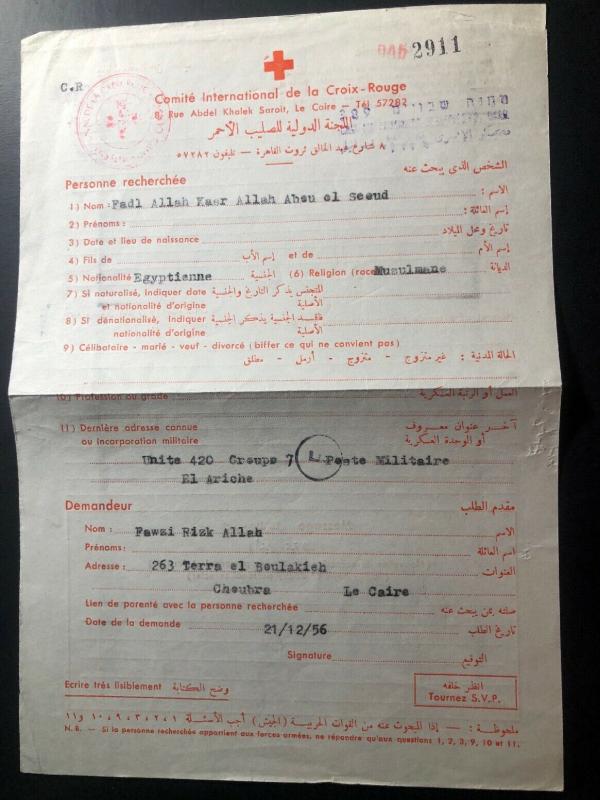 046 2911
C.R
Comité International de la Croix-Rouge
8, Rue Abdel Khalek Saroit, Le Caire — Tél 57282
اللجنة الدولية للصليب الأحمر
٨ شارع عبد الخالق ثروت القاهرة — تليفون ٥٧٢٨٢
Personne recherchée الشخص الذي يبحث عنه
1) Nom: Fadl Allah Kasr Allah Abou el Seoud الاسم :
2) Prénoms: إسم العائلة :
3) Date et lieu de naissance تاريخ ومحل الميلاد
4) Fils de إسم الأب et de إسم الأم
5) Nationalité Egyptienne الجنسية (6) Religion (race) Musulmane الديانة
7) Si naturalisé, indiquer date للمتجنس يذكر التاريخ والجنسية
et nationalité d'origine الأصلية
8) Si dénationalisé, indiquer فاقد الجنسية يذكر الجنسية
nationalité d'origine الأصلية
9) Célibataire - marié - veuf - divorcé (biffer ce qui ne convient pas)
الحالة المدنية : غير متزوج - متزوج - أرمل - مطلق
10) Profession ou grade العمل أو الرتبة العسكرية
11) Dernière adresse connue آخر عنوان معروف
ou incorporation militaire أو الوحدة العسكرية
Unite 420 Groupe 7 Poste Militaire
El Ariche
Demandeur مقدم الطلب
Nom: Fawzi Rizk Allah الاسم
Prénoms: اسم العائلة
Adresse: 263 Terra el Boulakieh العنوان
Choubra Le Caire
Lien de parenté avec la personne recherchée صلته بمن يبحث عنه
Date de la demande 21/12/56 تاريخ الطلب
Signature التوقيع
Ecrire très lisiblement وضح الكتابة
أنظر خلفه
Tournez S.V.P.
ملحوظة : — إذا المبحوث عنه من القوات الحربية (الجيش) أجب الأسئلة ١ ، ٢ ، ٣ ، ٩ ، ١٠ و ١١
N.B. — Si la personne recherchée appartient aux forces armées, ne répondre qu'aux questions 1, 2, 3, 9, 10 et 11.